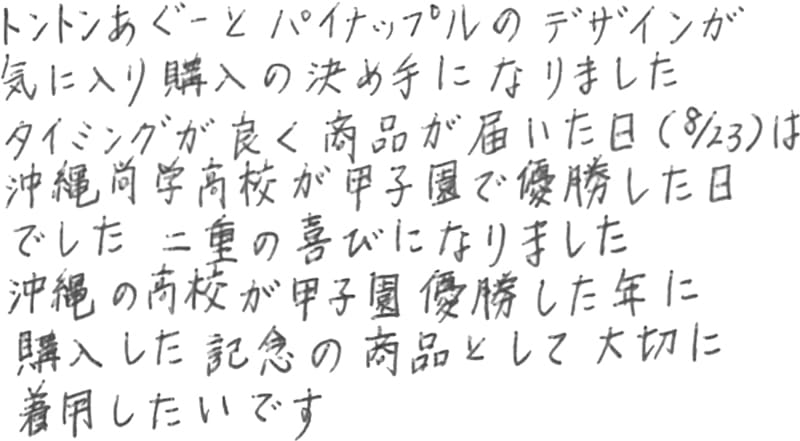 トントンあぐーとパイナップルのデザインが
気に入り購入の決め手になりました
タイミングが良く商品が届いた日(8/23)は
沖縄尚学高校が甲子園で優勝した日
でした 二重の喜びになりました
沖縄の高校が甲子園優勝した年に
購入した記念の商品として大切に
着用したいです